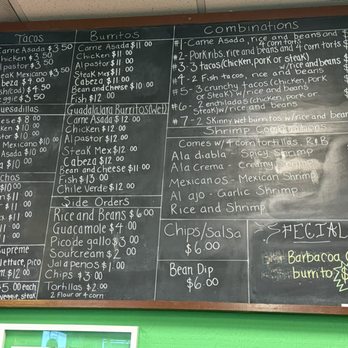 Tacos
Carne Asada $3.50
Chicken $3.50
Al pastor $3.50
Steak Mexicano $3.50
Cabeza $4.00
Fish $4.50
$3.50
Quesadillas
Cheese $8.00
Chicken $10
Pastor $10.00
Mexicano $10.00
Asada $10.00
$10
Nachos
$11.00
$11.00
$11.00
$11.00
Supreme
lettuce, pico
$12.00
$5.00 each
veggie, steak
Burritos
Carne Asada $11.00
Chicken $11.00
Al pastor $11.00
Steak Mex $11.00
Cabeza $11.00
Bean and cheese $10.00
Fish $12.00
Guadalajara Burritos (Wet)
Carne Asada $12.00
Chicken $12.00
Al pastor $12.00
Steak Mex $12.00
Cabeza $12.00
Bean and Cheese $11.00
Fish $13.00
Chile Verde $12.00
Side Orders
Rice and Beans $6.00
Guacamole $4.00
Pico de gallo $3.00
Sour cream $2.00
Jalapenos $1.00
Chips $3.00
Tortillas $2.00
2 Flour or 4 corn
Combinations
#1 - Carne Asada, rice and beans and
4 corn
#2 - Pork ribs, rice and beans and 4 corn torts
#3 - 3 tacos (chicken, pork or steak)
w/ rice and beans
#4 - 2 Fish tacos, rice and beans
#5 - 3 crunchy tacos (chicken
or Steak) w/ rice and beans
#6 - 2 enchiladas (chicken, pork or
Steak) w/ rice and beans
#7 - 2 Skinny wet burritos w/ rice and beans
Shrimp Combinations
Comes w/ 4 corn tortillas R & B
Ala diabla - Spicy Shrimp
Ala Crema - Creamy Shrimp
Mexicanos - Mexican Shrimp
Al ajo - Garlic Shrimp
Rice and Shrimp
Chips/Salsa
$6.00
Bean Dip
$6.00
SPECIAL
Barbacoa
burrito